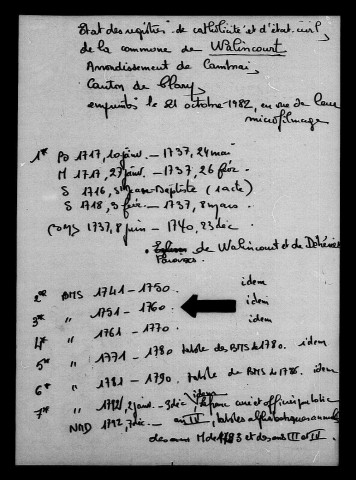 Etat des registres de catholicité et d'état civil,
de la commune de Walincourt
Arrondissement de Cambrai,
Canton de Clary,
empruntés le 21 octobre 1982, en vue de leur
microfilmage
1* B 1717, 10 janv. - 1737, 24 mai
M 1717, 27 janv. - 1737, 26 févr.
S 1716, St Jean-Baptiste (1 acte)
S 1718, 3 févr. - 1737, 8 mars
BMS 1737, 8 juin - 1740, 23 déc.
de Walincourt et de Dehéries
Paroisses
2* BMS 1741 - 1750. idem
3* " 1751 - 1760. idem
4* " 1761 - 1770. idem
5* " 1771 - 1780 table des BMS de 1780. idem
6* " 1781 - 1790. table de BMS de 1786. idem
7* " 2 janv. - 3 déc, idem curé et officier public
NMD 1792, 7 déc. - an IV, tables alphabétiques annuelles
des ans III et IV.